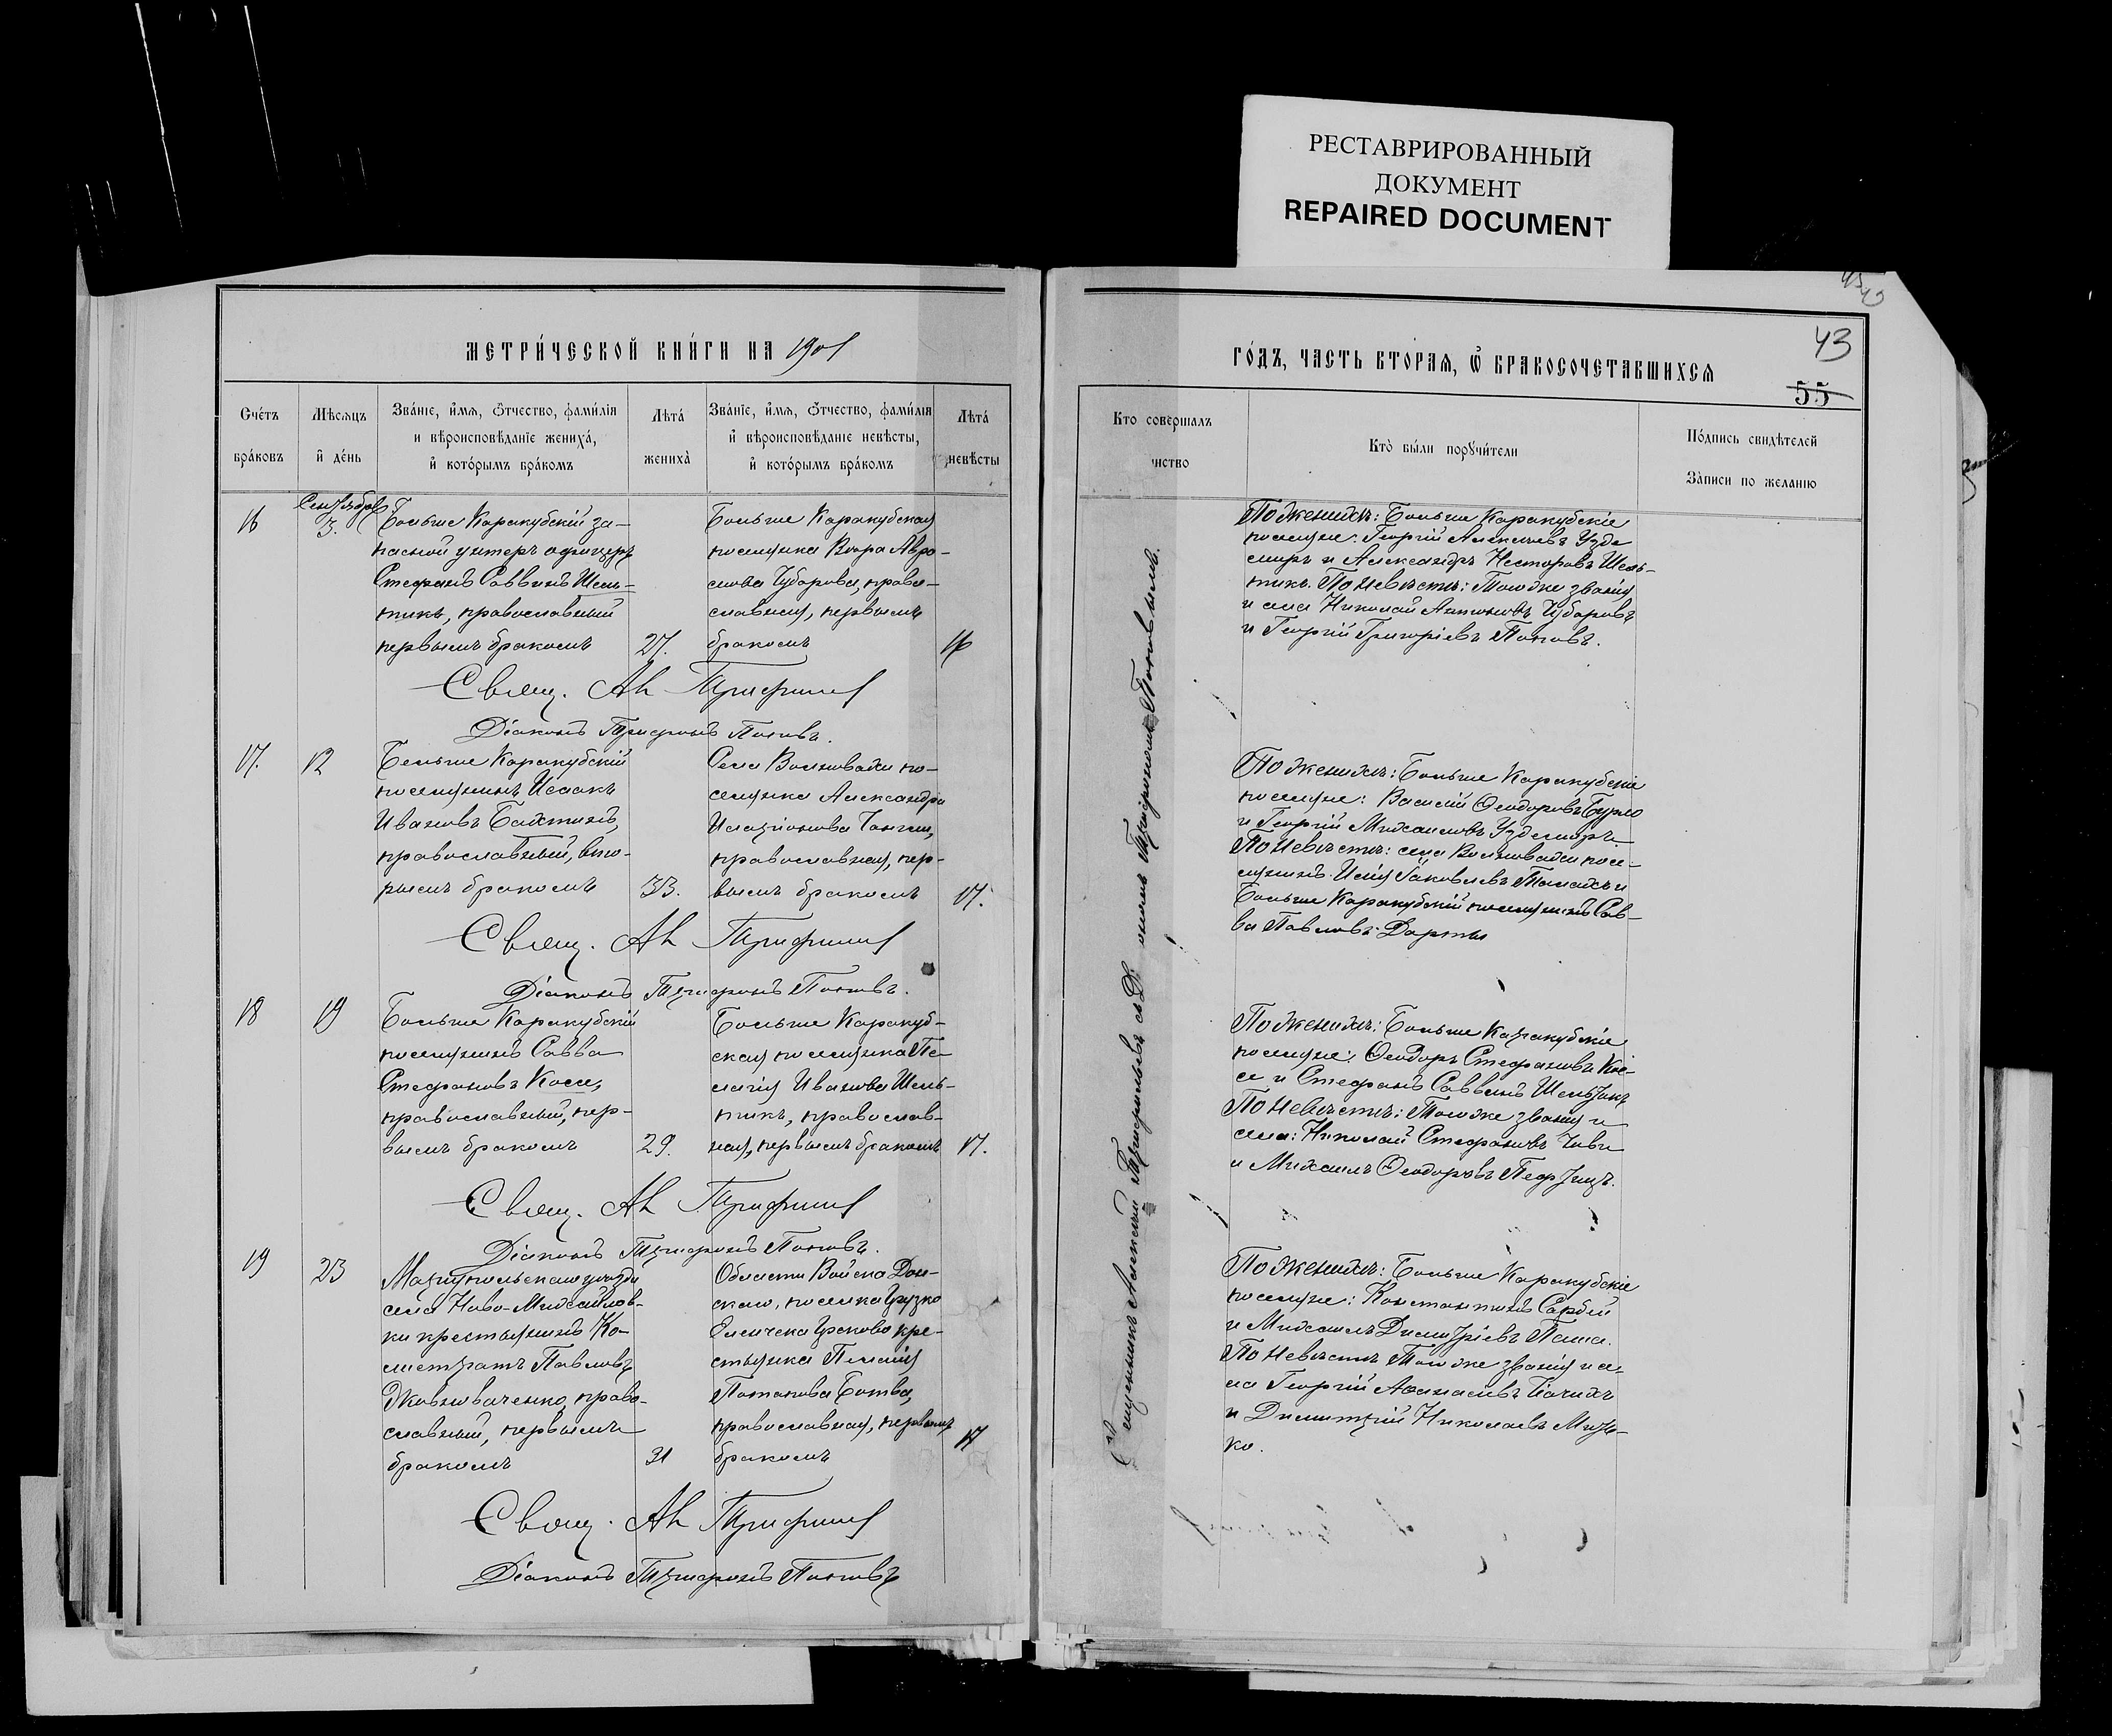 РЕСТАВРИРОВАННЫЙ
ДОКУМЕНТ
REPAIRED DOCUMENT
МЕТРИ́ЧЕСКОЙ КНИ́ГИ НА 1901
Сче́тъ бра́ковъ
Мѣсяцъ и де́нь
Зва́нїе, и҆́мѧ, ѻ҆́тчество, фами́лїѧ
и вѣроисповѣ́данїе жениха́,
и҆ кото́рымъ бра́комъ
Лѣта́ жениха̀
Зва́нїе, и҆́мѧ, ѻ҆́тчество, фами́лїѧ
и҆ вѣроисповѣ́данїе невѣ́сты,
и҆ кото́рымъ бра́комъ
Лѣта́ невѣ́сты
Сентября
16
3.
Больше Каракубскій за-
пасной унтеръ офицеръ
Стефанъ Саввинъ Шель-
тикъ, православный
первымъ бракомъ
27.
Больше Каракубская
поселянка Вѣра Авра-
мова Чубарова, право-
славная, первымъ
бракомъ
16
Свящ. Ал Трифильев
Діаконъ Трифонъ Поповъ.
17.
12
Больше Каракубскій
поселянинъ Исаакъ
Ивановъ Бахтинъ,
православный, вто-
рымъ бракомъ
33.
Села Волновахи по-
селянка Александра
Иларіонова
православная, пер-
вымъ бракомъ
17.
Свящ. Ал Трифильев
Діаконъ Трифонъ Поповъ.
18
19
Больше Каракубскій
поселянинъ Савва
Стефановъ Косе,
православный, пер-
вымъ бракомъ
29.
Больше Каракуб-
ская поселянка Пе-
лагія Иванова Шель-
тикъ, православ-
ная, первымъ бракомъ
17.
Свящ. Ал Трифильев
Діаконъ Трифонъ Поповъ.
19
23
Маріупольскаго уѣзда
села Ново-Михайлов-
ки крестьянинъ Ка-
листратъ Павловъ
Жовноваченко, право-
славный, первымъ
бракомъ
31
Области Войска Дон-
скаго, поселка Грузко
Еланчека крe-
стьянка Пелагія
Потапова Ботва,
православная, первымъ
бракомъ
17
Свящ. Ал Трифильев
Діаконъ Трифонъ Поповъ
43
ГО́ДЪ, ЧАСТЬ ВТОРАѦ, Ѡ҆ БРАКОСОЧЕТАВШИХСѦ
55
Кто соверша́лъ
инство
Кто̀ бы́ли порꙋчи́тели
По́дпись свидѣ́телей
За̀писи по жела́нїю
Священникъ Алексѣй Трифильевъ съ Діакономъ Трифономъ Поповымъ.
По женихѣ: Больше Каракубскіе
поселяне: Георгій Алексѣевъ Узде
миръ и Александръ Несторовъ Шель-
тикъ. По невѣстѣ: Того же званія
и села Николай Антоновъ Чубаровъ
и Георгій Григоріевъ Поповъ.
По женихѣ: Больше Каракубскіе
поселяне: Василій Ѳеодоровъ Бурло
и Георгій Михаиловъ Уздемиръ.
По невѣстѣ: села Волновахи посе-
лянинъ Илія Іаковлевъ и
Больше Каракубскій поселянинъ Сав-
ва Павловъ Дарты
По женихѣ: Больше Каракубскіе
поселяне: Ѳеодоръ Стефановъ Ко-
се и Стефанъ Саввинъ Шельтикъ
По невѣстѣ: Того же званія и
села: Николай Стефановъ Чави
и Михаилъ Ѳеодоровъ
По женихѣ: Больше Каракубскіе
поселяне: Константинъ Сарбей
и Михаилъ Димитріевъ Паша.
По невѣстѣ Того же званія и се-
ла Георгій Аѳанасіевъ
и Димитрій Николаевъ
ко.